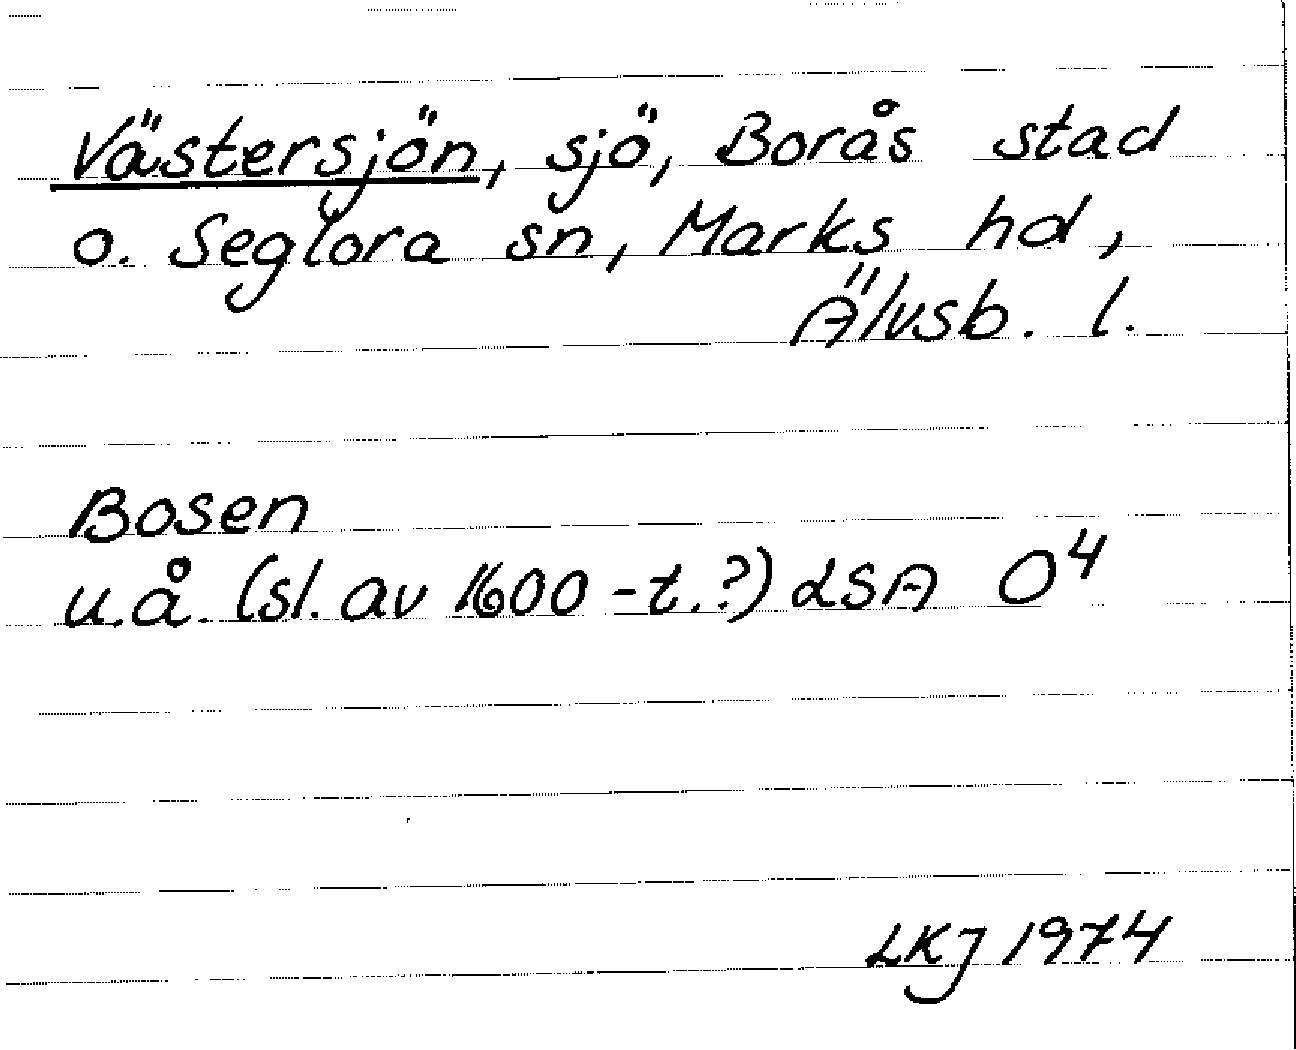 Västersjön, sjö, Borås stad
o. Seglora sn, Marks hd,
Älvsb. l.
Bosen
u.å. (sl. av 1600-t.?) LSA O⁴
LKJ 1974